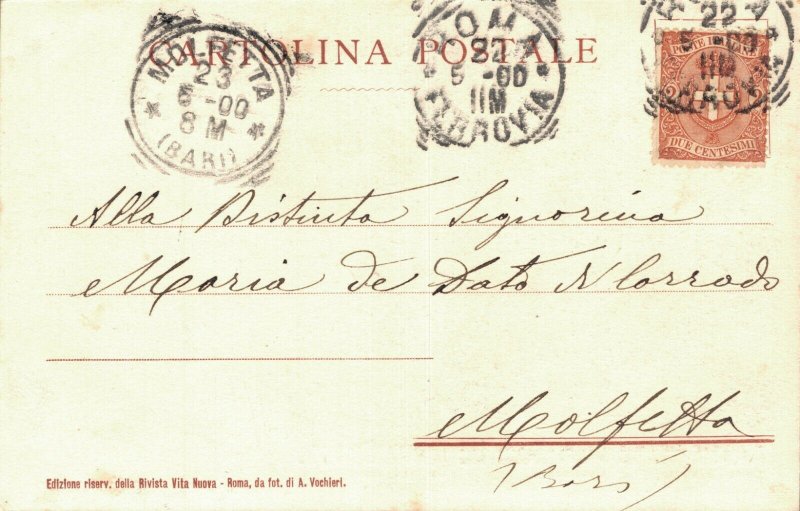 CARTOLINA POSTALE
MOLFETTA
23
5-00
8 M
(BARI)
ROMA
22
5-00
11M
FERROVIA
22
5-00
11M
POSTE ITALIANE
DUE CENTESIMI
Alla Distinta Signorina
Maria de Dato
Molfetta
(Bari)
Edizione riserv. della Rivista Vita Nuova - Roma, da fot. di A. Vochieri.